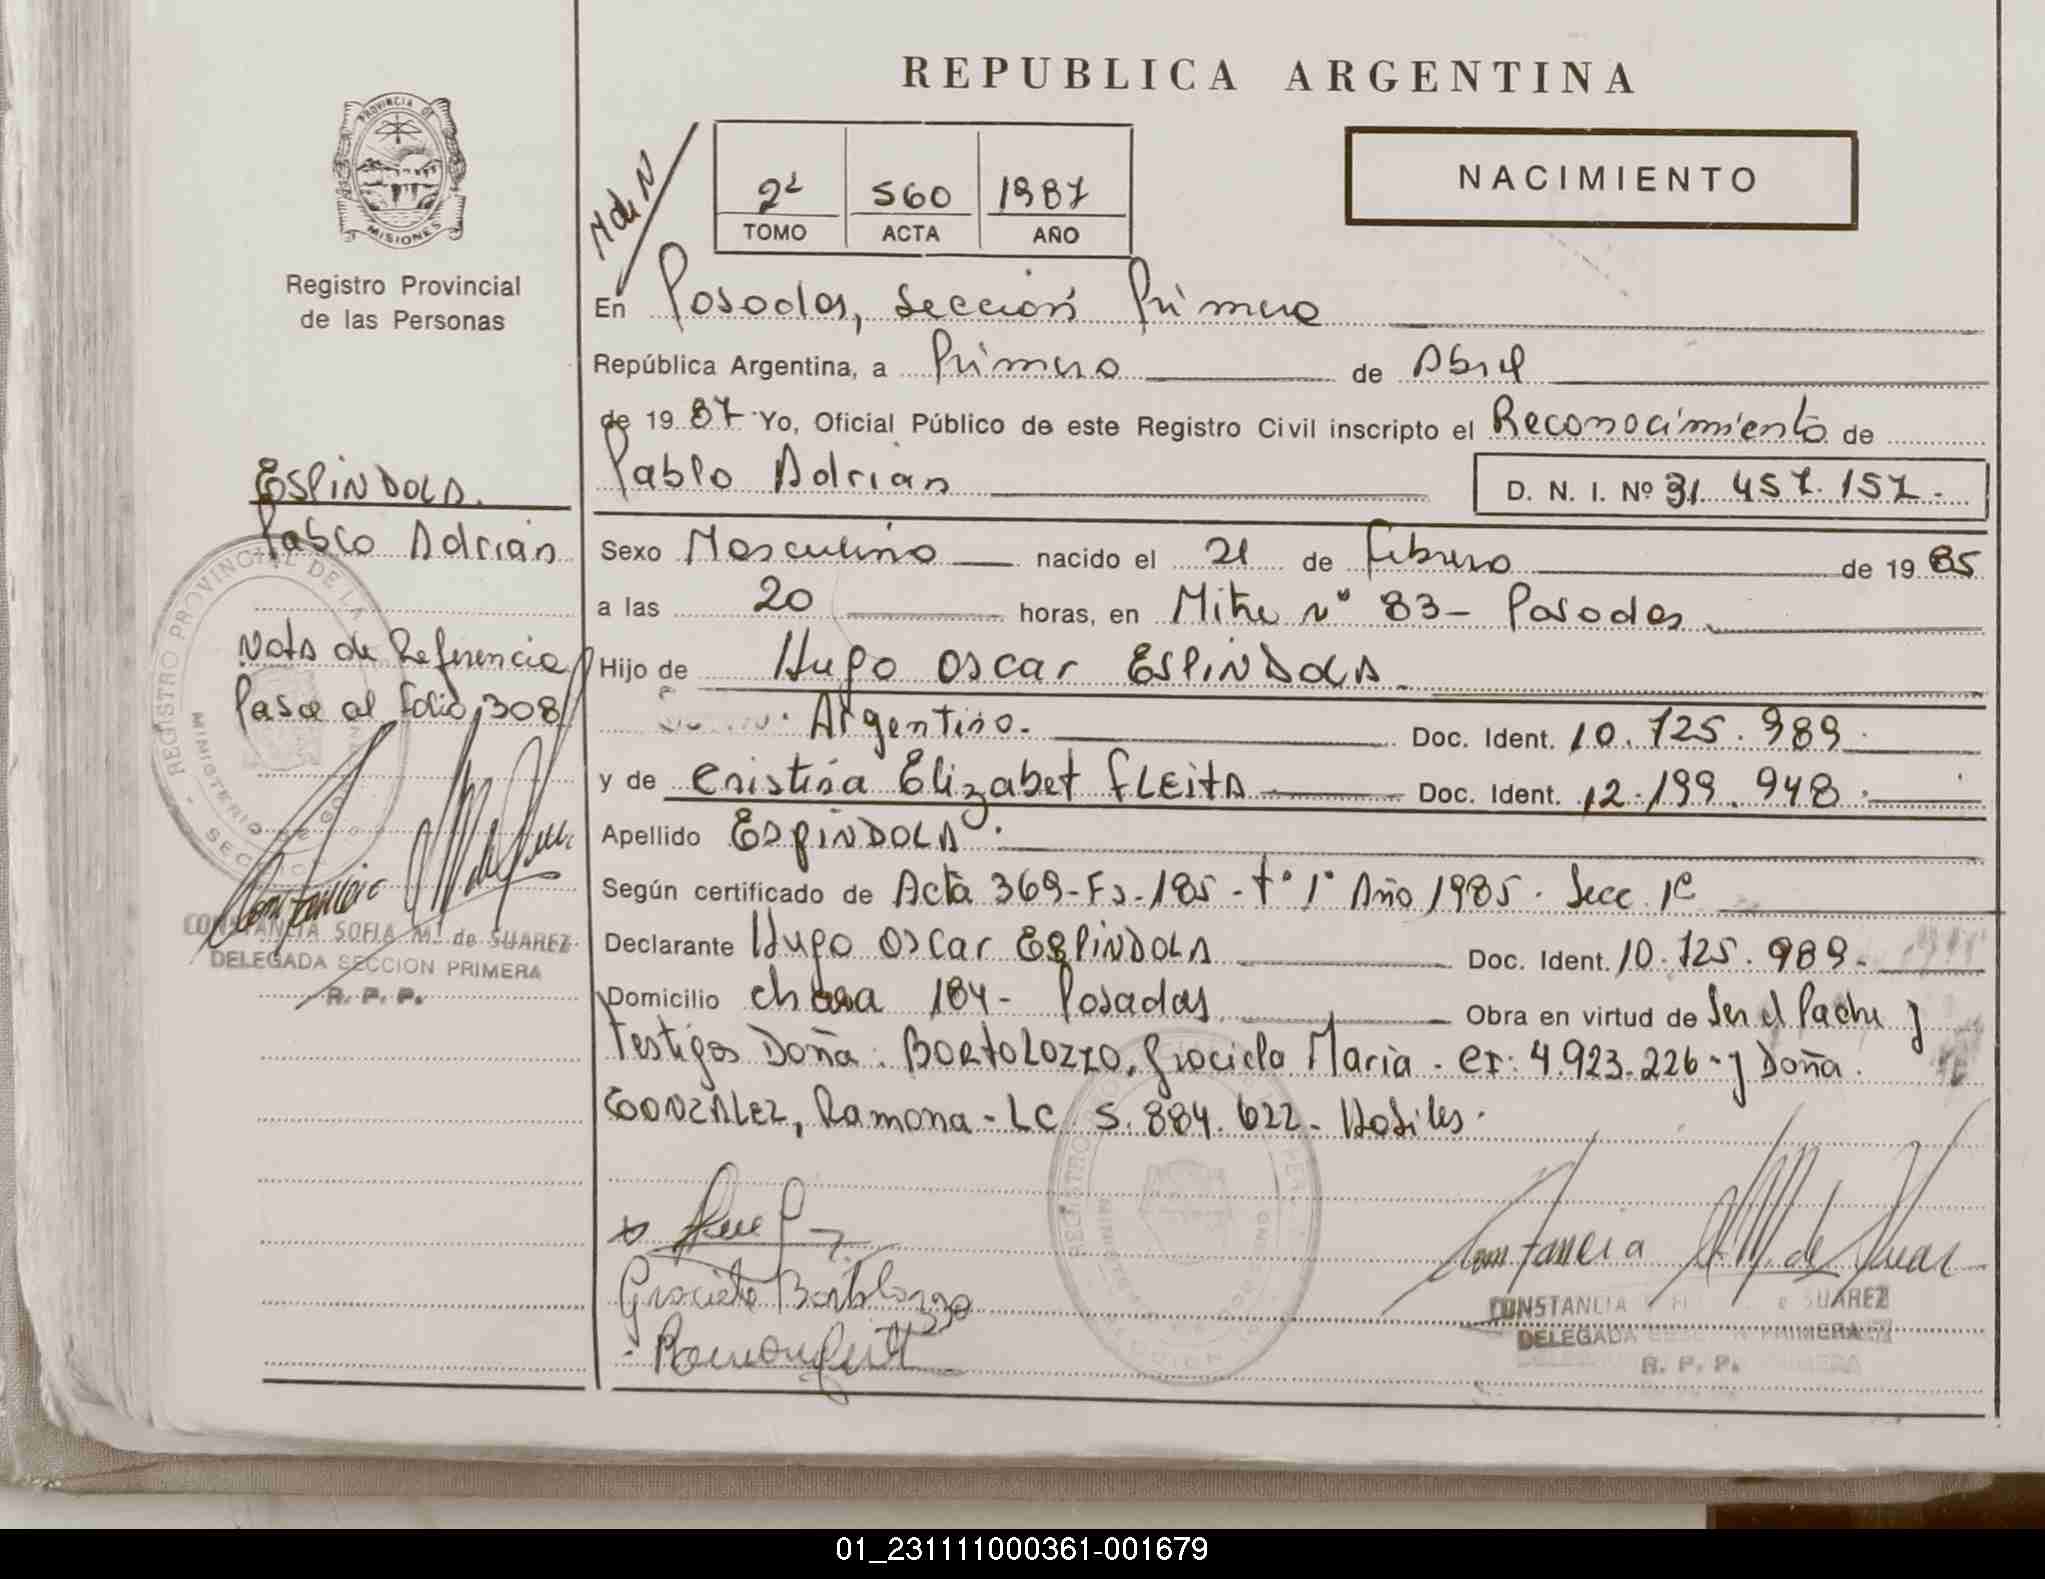 REPUBLICA ARGENTINA
NACIMIENTO
PROVINCIA DE
MISIONES
Registro Provincial
de las Personas
M de N
2º 560 1987
TOMO ACTA AÑO
En Posadas, Sección Primera
República Argentina, a Primero de Abril
de 1987 Yo, Oficial Público de este Registro Civil inscripto el Reconocimiento de
Pablo Adrian D. N. I. Nº 31.457.157.-
ESPINDOLA.
Pablo Adrian
Nota de Referencia
Pasa al folio 308
CONSTANCIA SOFIA M. de SUAREZ
DELEGADA SECCION PRIMERA
R. P. P.
Sexo Masculino nacido el 21 de Febrero de 1985
a las 20 horas, en Mitre Nº 83 - Posadas
Hijo de Hugo Oscar ESPINDOLA.
Argentino. Doc. Ident. 10.725.989.
y de Cristina Elizabet FLEITA Doc. Ident. 12.199.948.
Apellido ESPINDOLA.
Según certificado de Acta 369-Fs.185-tº 1º Año 1985. Secc. 1ª
Declarante Hugo Oscar ESPINDOLA Doc. Ident. 10.725.989.
Domicilio chacra 184 - Posadas Obra en virtud de Ser el Padre y
Testigos Doña: BORTOLOZZO, Graciela Maria - CI: 4.923.226 - y Doña
GONZALEZ, Ramona - LC 5.884.622 - Habiles.
Graciela Bortolozzo
Constancia M. de Suarez
CONSTANCIA SUAREZ
DELEGADA PRIMERA
R. P. P.
01_231111000361-001679